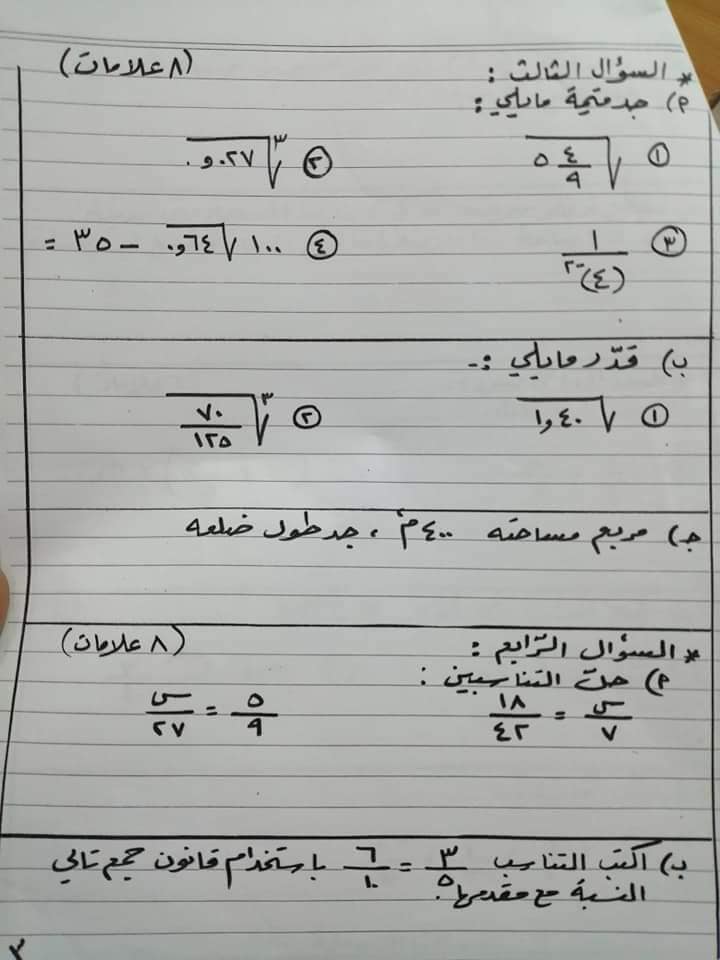 * السؤال الثالث : (٨ علامات)
م) جد قيمة مايلي :
① √٥ ٤/٩ ② ∛٠٢٧و٠
③ ١/(٤)⁻² ④ ١٠٠ √٦٤و٠ - ٣٥ =
ب) قدّر مايلي :-
① √٤٠و١ ② ∛٧٠/١٢٥
جـ) مربع مساحته ٤٠٠م² ، جد طول ضلعه
* السؤال الرابع : (٨ علامات)
م) حل التناسبين :
س/٧ = ١٨/٤٢ ٥/٩ = س/٢٧
ب) اكتب التناسب ٣/٥ = ٦/١٠ باستخدام قانون جمع تالي
النسبة مع مقدمها.
٣